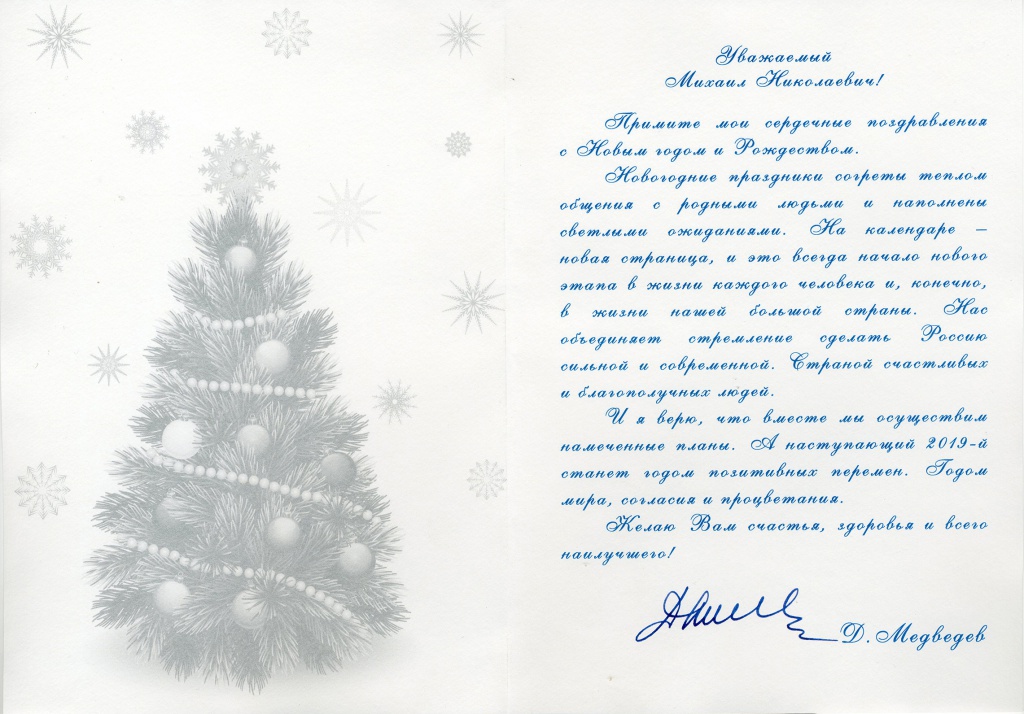 Уважаемый
Михаил Николаевич!
Примите мои сердечные поздравления
с Новым годом и Рождеством.
Новогодние праздники согреты теплом
общения с родными людьми и наполнены
светлыми ожиданиями. На календаре –
новая страница, и это всегда начало нового
этапа в жизни каждого человека и, конечно,
в жизни нашей большой страны. Нас
объединяет стремление сделать Россию
сильной и современной. Страной счастливых
и благополучных людей.
И я верю, что вместе мы осуществим
намеченные планы. А наступающий 2019-й
станет годом позитивных перемен. Годом
мира, согласия и процветания.
Желаю Вам счастья, здоровья и всего
наилучшего!
Д. Медведев